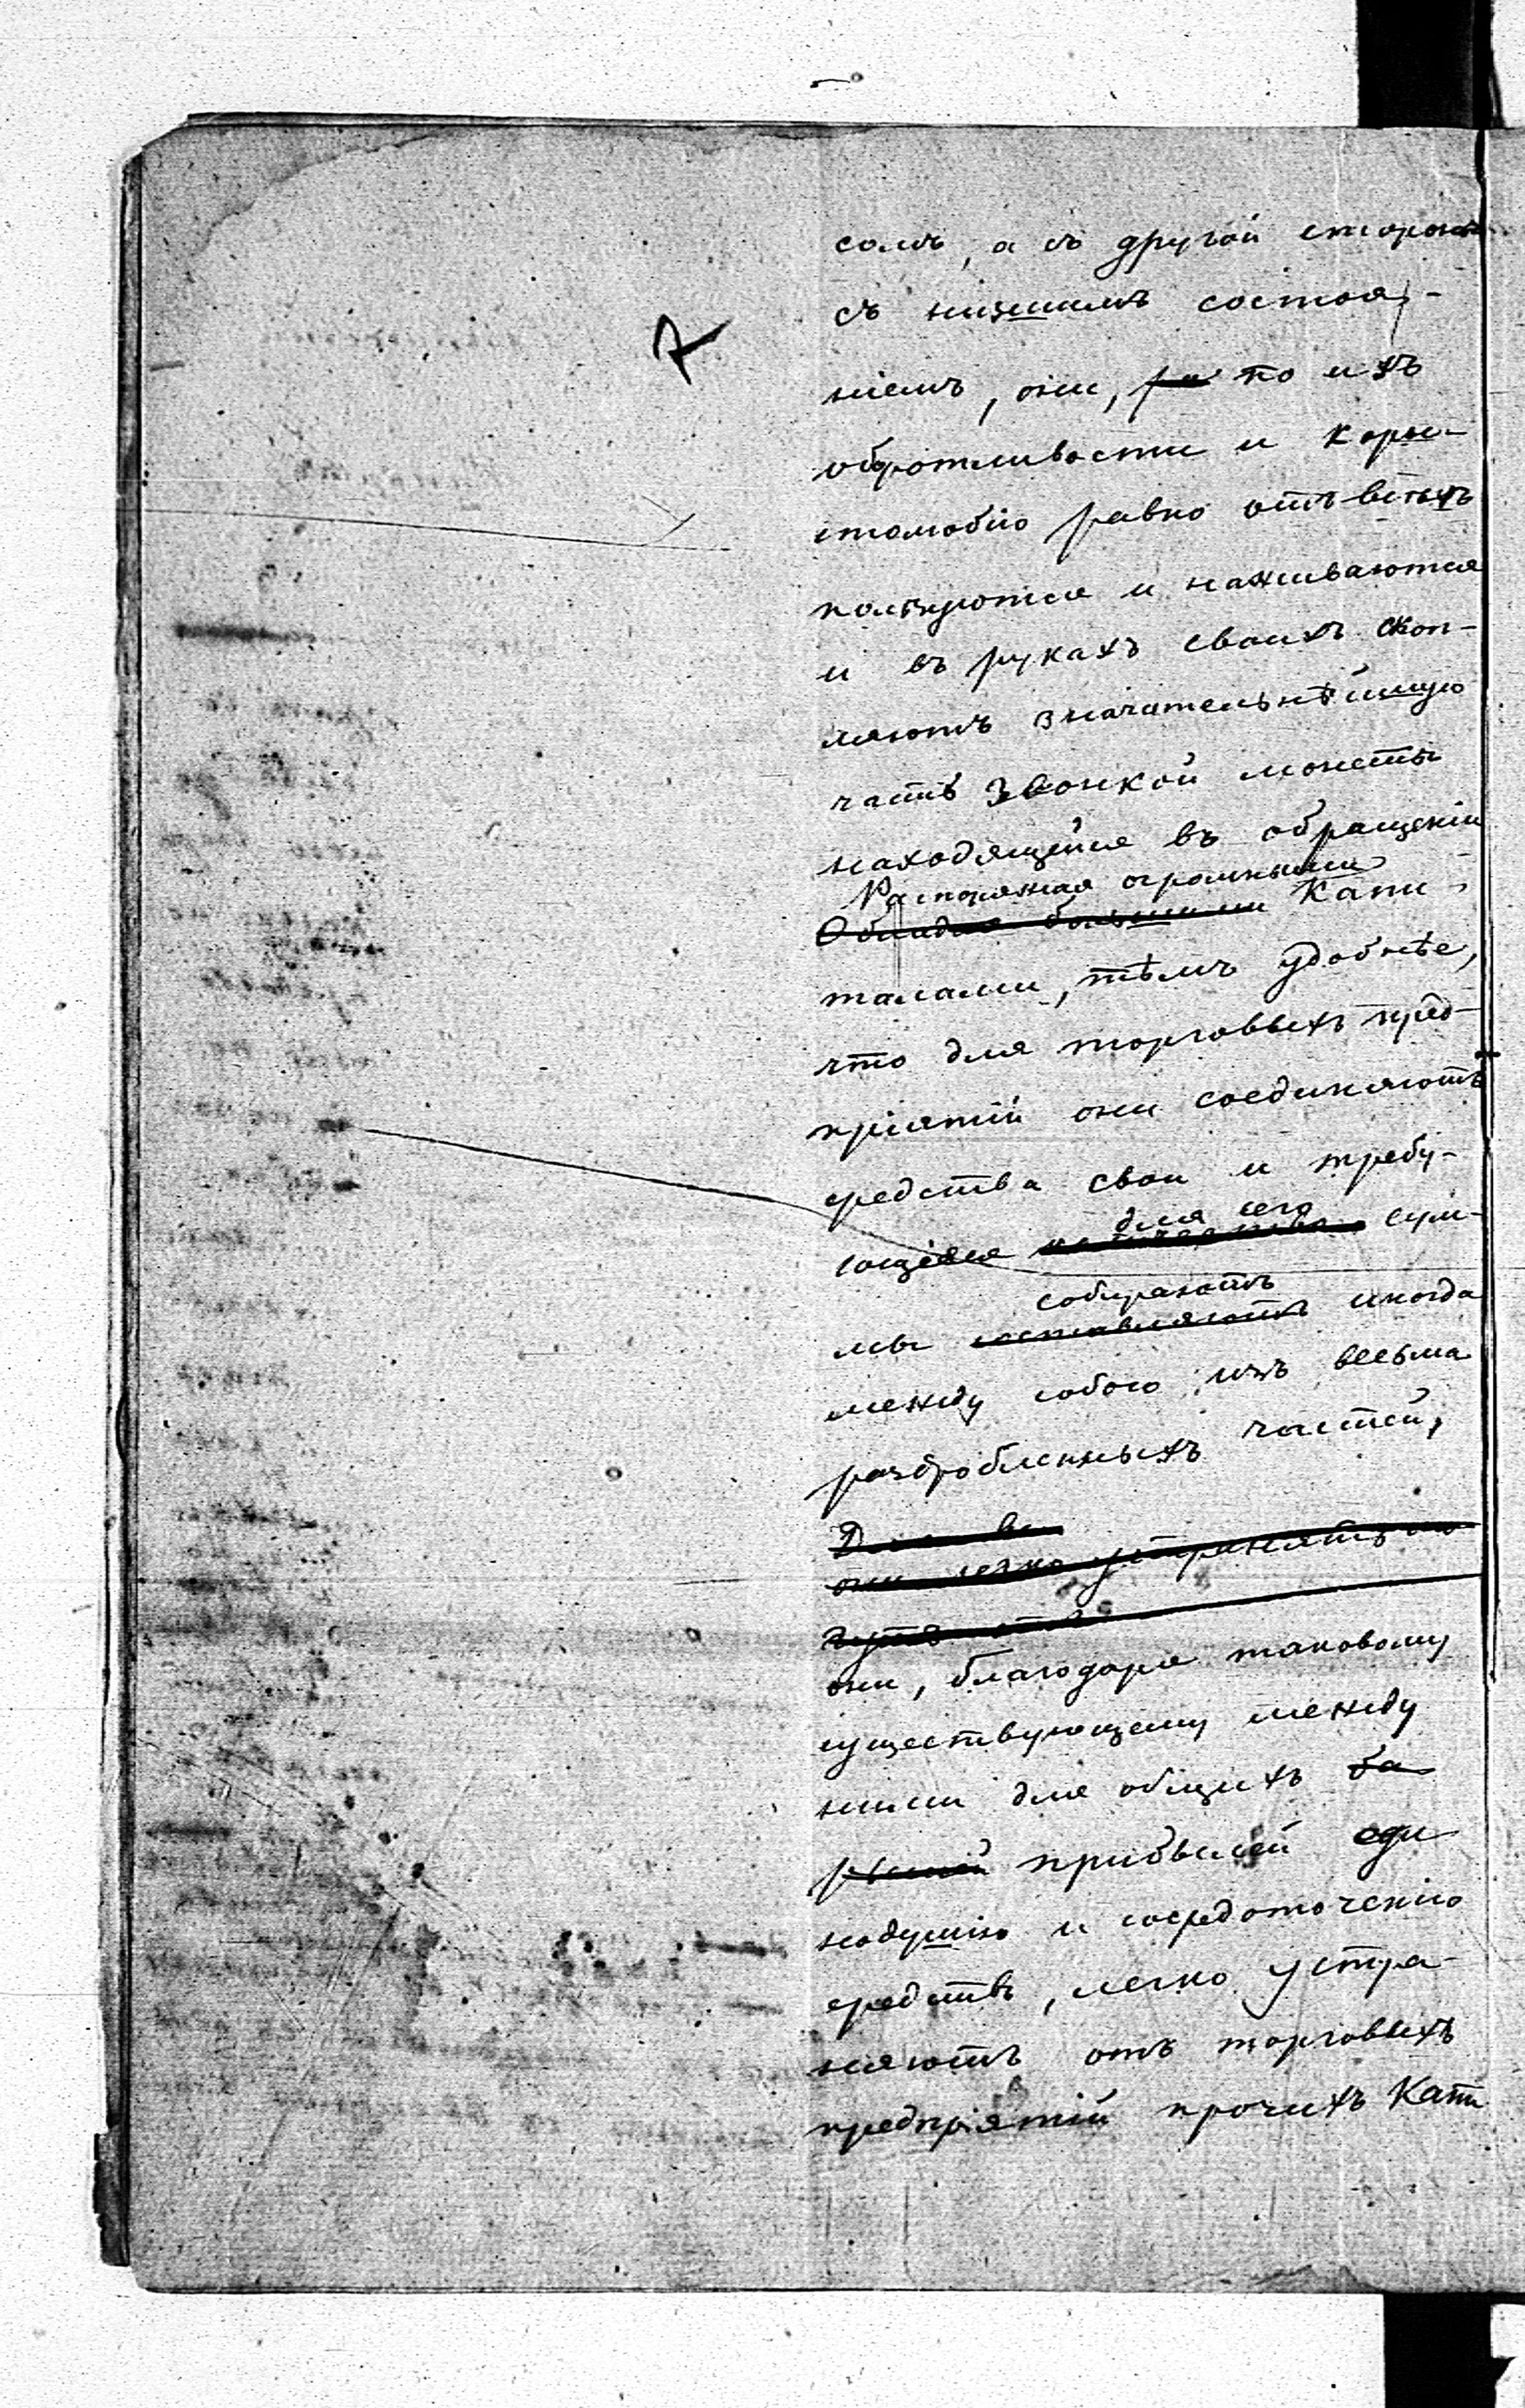 сомъ, а съ другой стороны
съ низшимъ состоя-
ніемъ, они, по ихъ
оборотливости и коры-
столюбію равно отъ всѣхъ
пользуются и наживаются
и въ рукахъ своихъ скоп-
ляютъ значительнѣйшую
часть звонкой монеты
находящейся въ обращеніи
Располагая огромными
Обладая большими Капи-
талами, тѣмъ удобнѣе,
что для торговыхъ пред-
пріятій они соединяютъ
средства свои и требу-
для сего
ющіяся сум-
собираютъ
мы составляютъ иногда
между собою изъ весьма
раздробленныхъ частей,
они легко устранятъ
они, благодаря таковому
существующему между
ними для общихъ ба
рышей прибылей еди
нодушію и сосредоточенію
средствъ, легко устра-
няютъ отъ торговыхъ
предпріятій прочихъ Капи